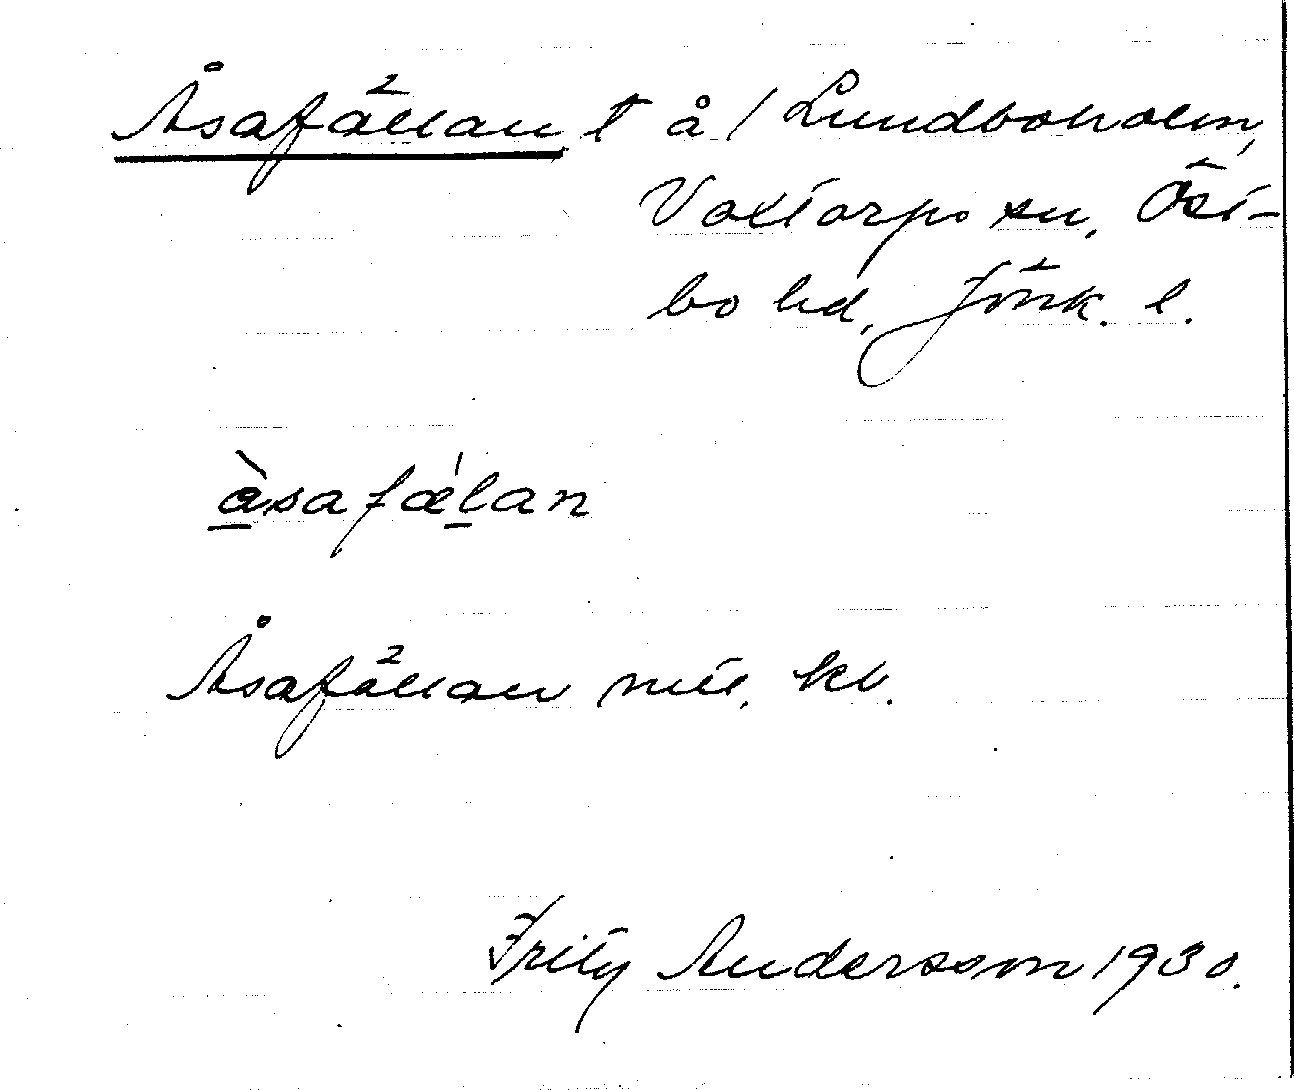 Åsafällan t å / Lundboholm,
Voxtorps sn, Öst-
bo hd, Jönk. l.
àsafǽlan
Åsafällan mtl. kl.
Fritz Andersson 1930.